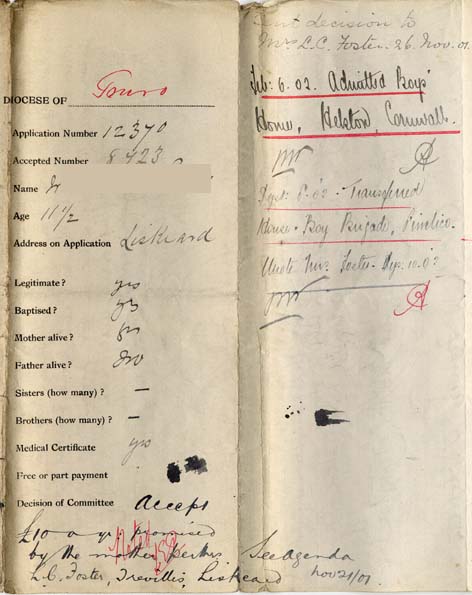 DIOCESE OF Truro
Application Number 12370
Accepted Number 8423
Name
Age 11 1/2
Address on Application Liskeard
Legitimate? yes
Baptised? yes
Mother alive? yes
Father alive? No
Sisters (how many)? —
Brothers (how many)? —
Medical Certificate yes
Free or part payment
Decision of Committee Accept
£10 a yr. promised
by the mother
L.C. Foster, Trevillis, Liskeard
Sent decision to
Mrs L.C. Foster. 26. Nov. 01.
Feb: 6. 02. Admitted Boys'
Home, Helston, Cornwall.
Sept: 8. 02 - Transferred
House-Boy Brigade, Pimlico.
Wrote Mrs. Foster. Sep. 10. 02
See Agenda
Nov 21/01